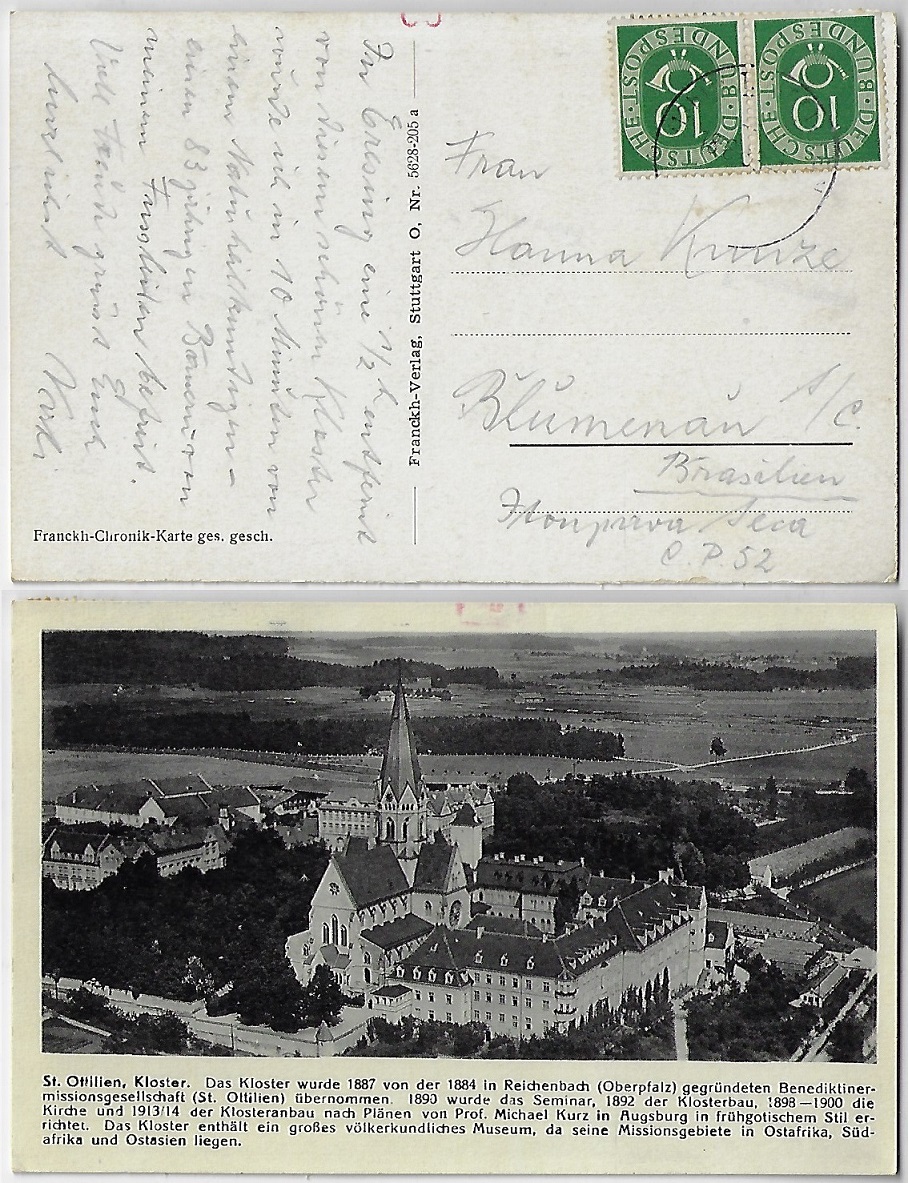 In Eresing eine 1/2 h entfernt
von diesem schönen Kloster
wurde ich in 10 Minuten von
einer Naturheilkundigen -
einer 83 jährigen Bäuerin von
meinem Fussleiden befreit.
Viele Freude grüsst Euch
herzlichst
Franckh-Chronik-Karte ges. gesch.
Franckh-Verlag, Stuttgart O, Nr. 5628-205 a
DEUTSCHE · BUNDESPOST
10
DEUTSCHE · BUNDESPOST
10
Frau
Hanna Kunze
Blumenau S/C.
Brasilien
Itoupava Seca
C. P. 52
St. Ottilien, Kloster. Das Kloster wurde 1887 von der 1884 in Reichenbach (Oberpfalz) gegründeten Benediktiner-
missionsgesellschaft (St. Ottilien) übernommen. 1890 wurde das Seminar, 1892 der Klosterbau, 1898—1900 die
Kirche und 1913/14 der Klosteranbau nach Plänen von Prof. Michael Kurz in Augsburg in frühgotischem Stil er-
richtet. Das Kloster enthält ein großes völkerkundliches Museum, da seine Missionsgebiete in Ostafrika, Süd-
afrika und Ostasien liegen.